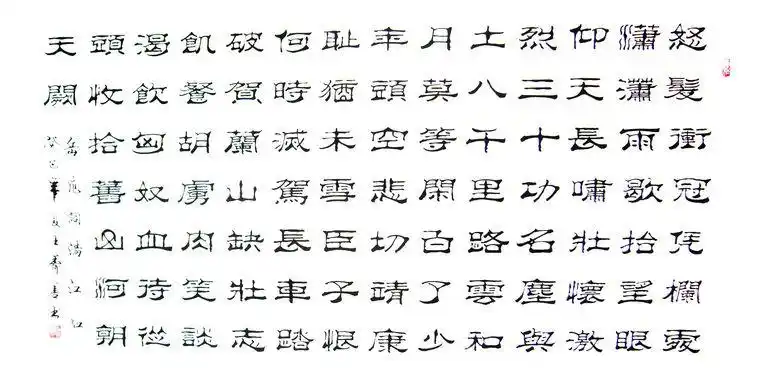 怒髮衝冠凭欄處
瀟瀟雨歇抬望眼
仰天長嘯壯懷激
烈三十功名塵與
土八千里路雲和
月莫等閑白了少
年頭空悲切靖康
耻猶未雪臣子恨
何時滅駕長車踏
破賀蘭山缺壯志
飢餐胡虜肉笑談
渴飲匈奴血待從
頭收拾舊山河朝
天闕
岳飛詞滿江紅
癸巳年夏王書